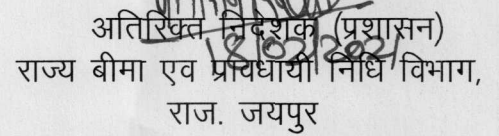 अतिरिक्त निदेशक (प्रशासन)
18/02/2021
राज्य बीमा एव प्रावधायी निधि विभाग,
राज. जयपुर